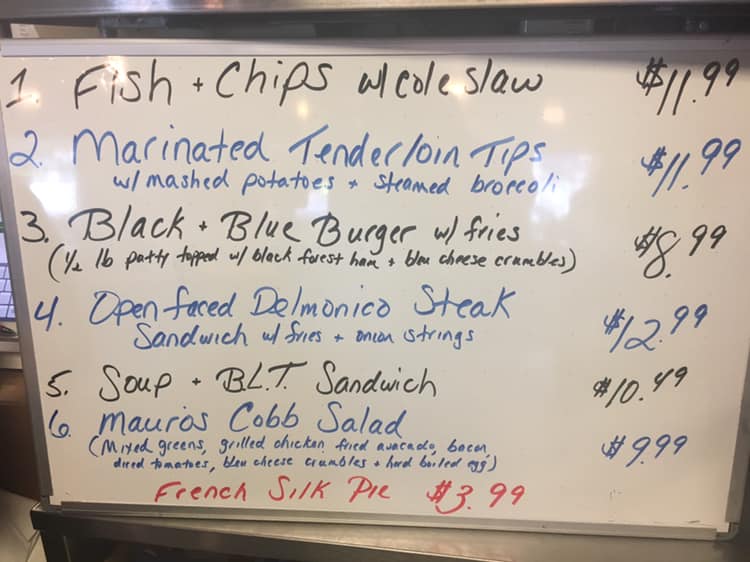 1. Fish + Chips w/ cole slaw $11.99
2. Marinated Tenderloin Tips $11.99
w/ mashed potatoes + steamed broccoli
3. Black + Blue Burger w/ fries $8.99
(1/2 lb patty topped w/ black forest ham + bleu cheese crumbles)
4. Open faced Delmonico Steak $12.99
Sandwich w/ fries + onion strings
5. Soup + B.L.T. Sandwich $10.49
6. Mauros Cobb Salad $9.99
(Mixed greens, grilled chicken, fried avacado, bacon,
diced tomatoes, bleu cheese crumbles + hard boiled egg)
French Silk Pie $3.99